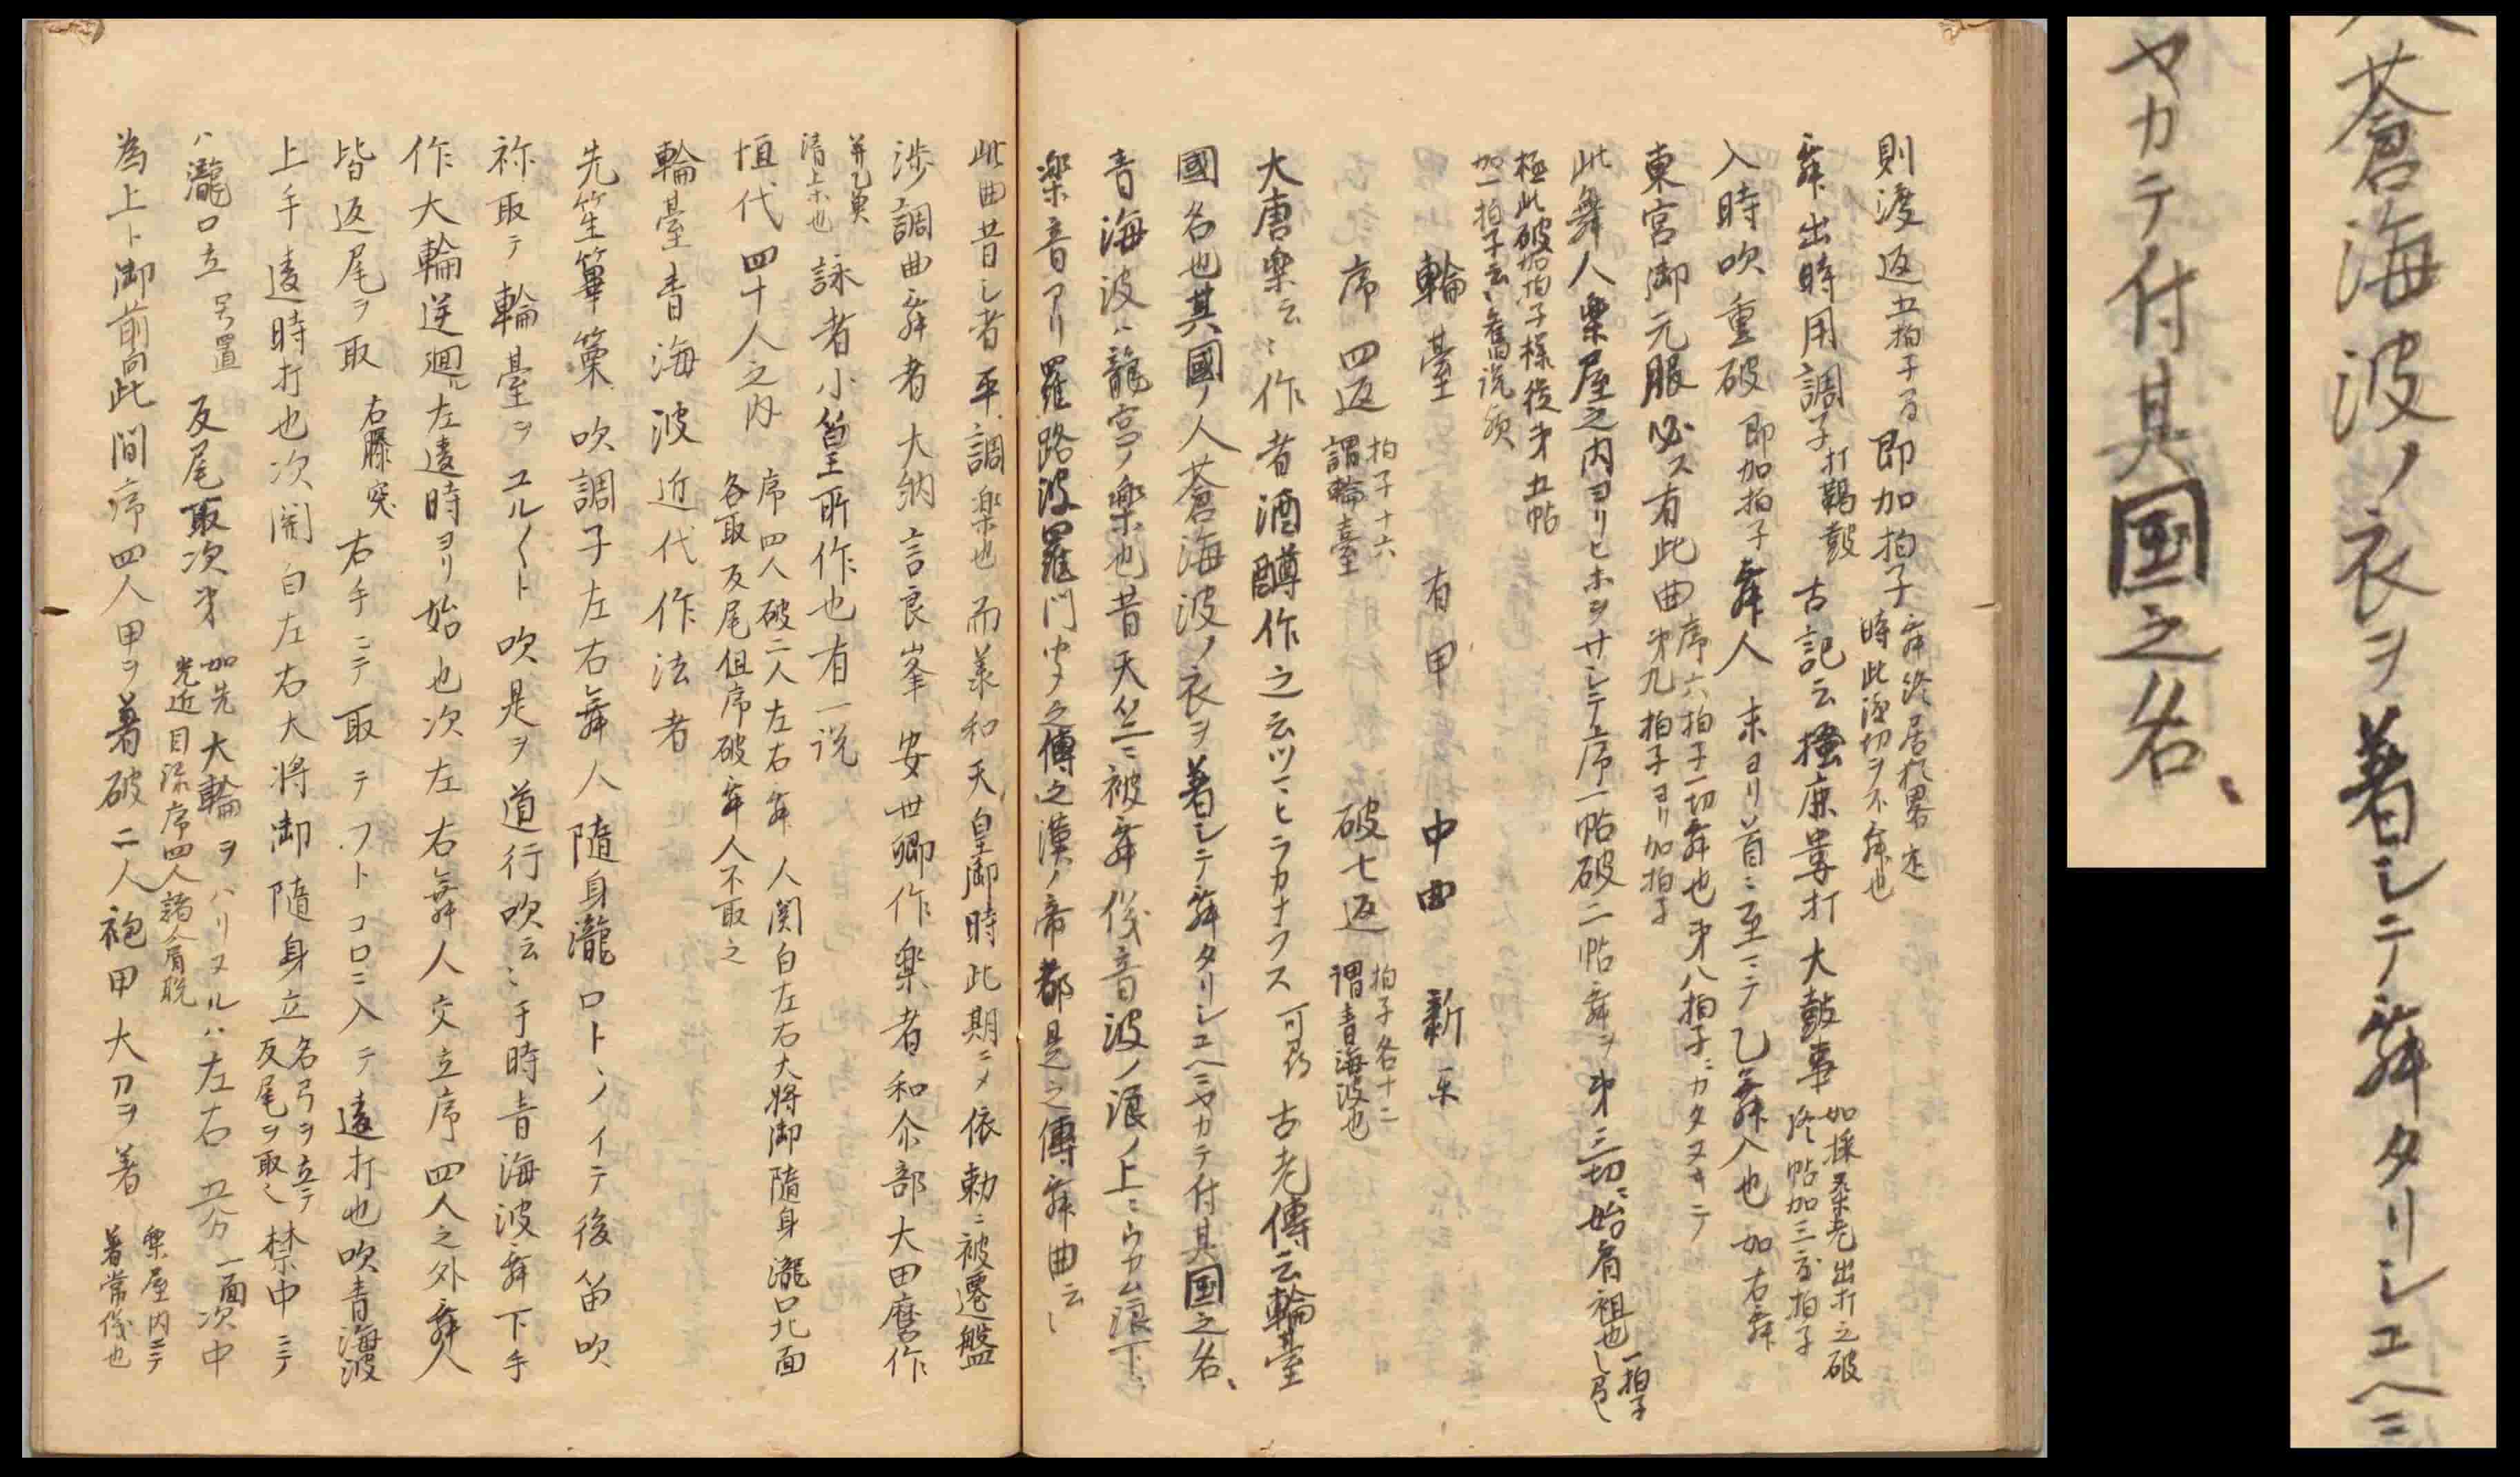 則渡返五拍子ヨ即加拍子
舞出時用調子打鞨鼓 古記云 大鼓事
入時吹重破即加拍子舞人末ヨリ首ニ至マテ乙舞入也加右舞
東宮御元服必ス有此曲序六拍子一切舞也第八拍子ニカタヌキテ
第九拍子ヨリ加拍子
此舞人楽屋之内ヨリヒホヲサシテ上序一帖破二帖舞ヲ第三切ニ始肩袒也
加一拍子云々舊説
輪臺 有甲 中曲 新楽
序四返 拍子十六
謂輪臺
破七返 拍子各十二
謂青海波也
大唐楽云々作者酒醉作之云ツマヒラカナラス可尋 古老傳云輪臺
國名也其國ノ人蒼海波ノ衣ヲ著シテ舞タリシユヘニヤカテ付其国之名
青海波ハ龍宮ノ楽也昔天竺ニ被舞儀音波ノ浪ノ上ニウカム浪下ニ
楽音アリ羅路波羅門 之傳之漢ノ帝都是之傳舞曲云々
此曲昔シ者平調楽也而承和天皇御時此期ニ〆依勅ニ被遷盤
渉調曲舞者大納言良峯安世卿作楽者和尓部大田麿作
詠者小篁所作也有一説
垣代四十人之内 序四人破二人左右舞人関白左右大将御随身瀧口北面
各取反尾但序破舞人不取之
輪臺青海波近代作法者
先笙篳篥吹調子左右舞人隨身瀧口トヽノイテ後笛吹
祢取テ輪臺ヲユル〱ト吹是ヲ道行吹云々于時青海波舞下手
作大輪逆廻ル左遠時ヨリ始也次左右舞人交立序四人之外舞人
皆返尾ヲ取 右膝突 右手ニテ取テフトコロニ入テ遠打也吹青海波
上手遠時打也次関白左右大将御隨身立 名弓ヲ立テ
反尾ヲ取之
禁中ニテ
ハ瀧口立 弓置 反尾取次第 加先大輪ヲハリヌルハ左右 一面次中
光近目録序四人諸肩脱
為上ト御前向此間序四人甲ヲ著破二人袍甲大刀ヲ著 楽屋内ニテ
著常儀也
ヤカテ付其国之名
蒼海波ノ衣ヲ著シテ舞タリシユヘニ